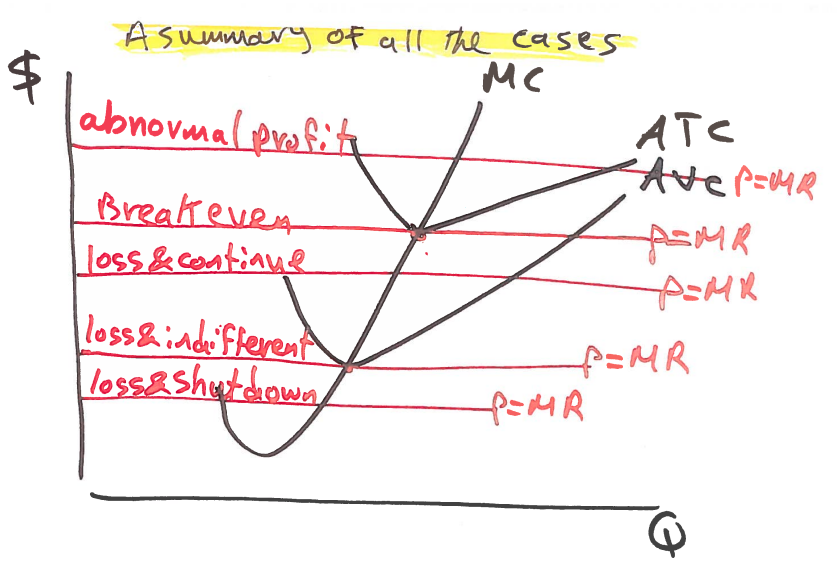 A summary of all the cases
$
MC
abnormal profit
ATC
AVC
P=MR
Breakeven
P=MR
loss&continue
P=MR
loss&indifferent
P=MR
loss&shutdown
P=MR
Q